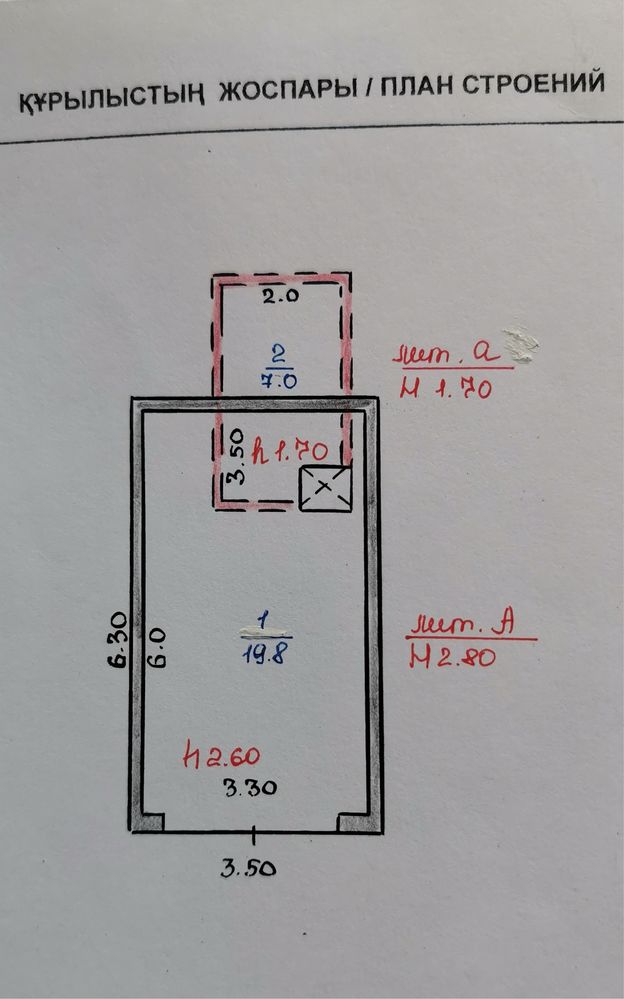 ҚҰРЫЛЫСТЫҢ ЖОСПАРЫ / ПЛАН СТРОЕНИЙ
2.0
2
7.0
лит. а
H 1.70
3.50
h 1.70
6.30
6.0
1
19.8
лит. А
H 2.80
h 2.60
3.30
3.50